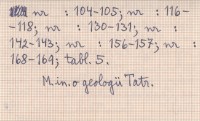 nr : 104-105; nr : 116-
-118; nr : 130-131; nr :
142-143; nr : 156-157; nr :
168-169; tabl. 5.
M.in. o geologii Tatr.